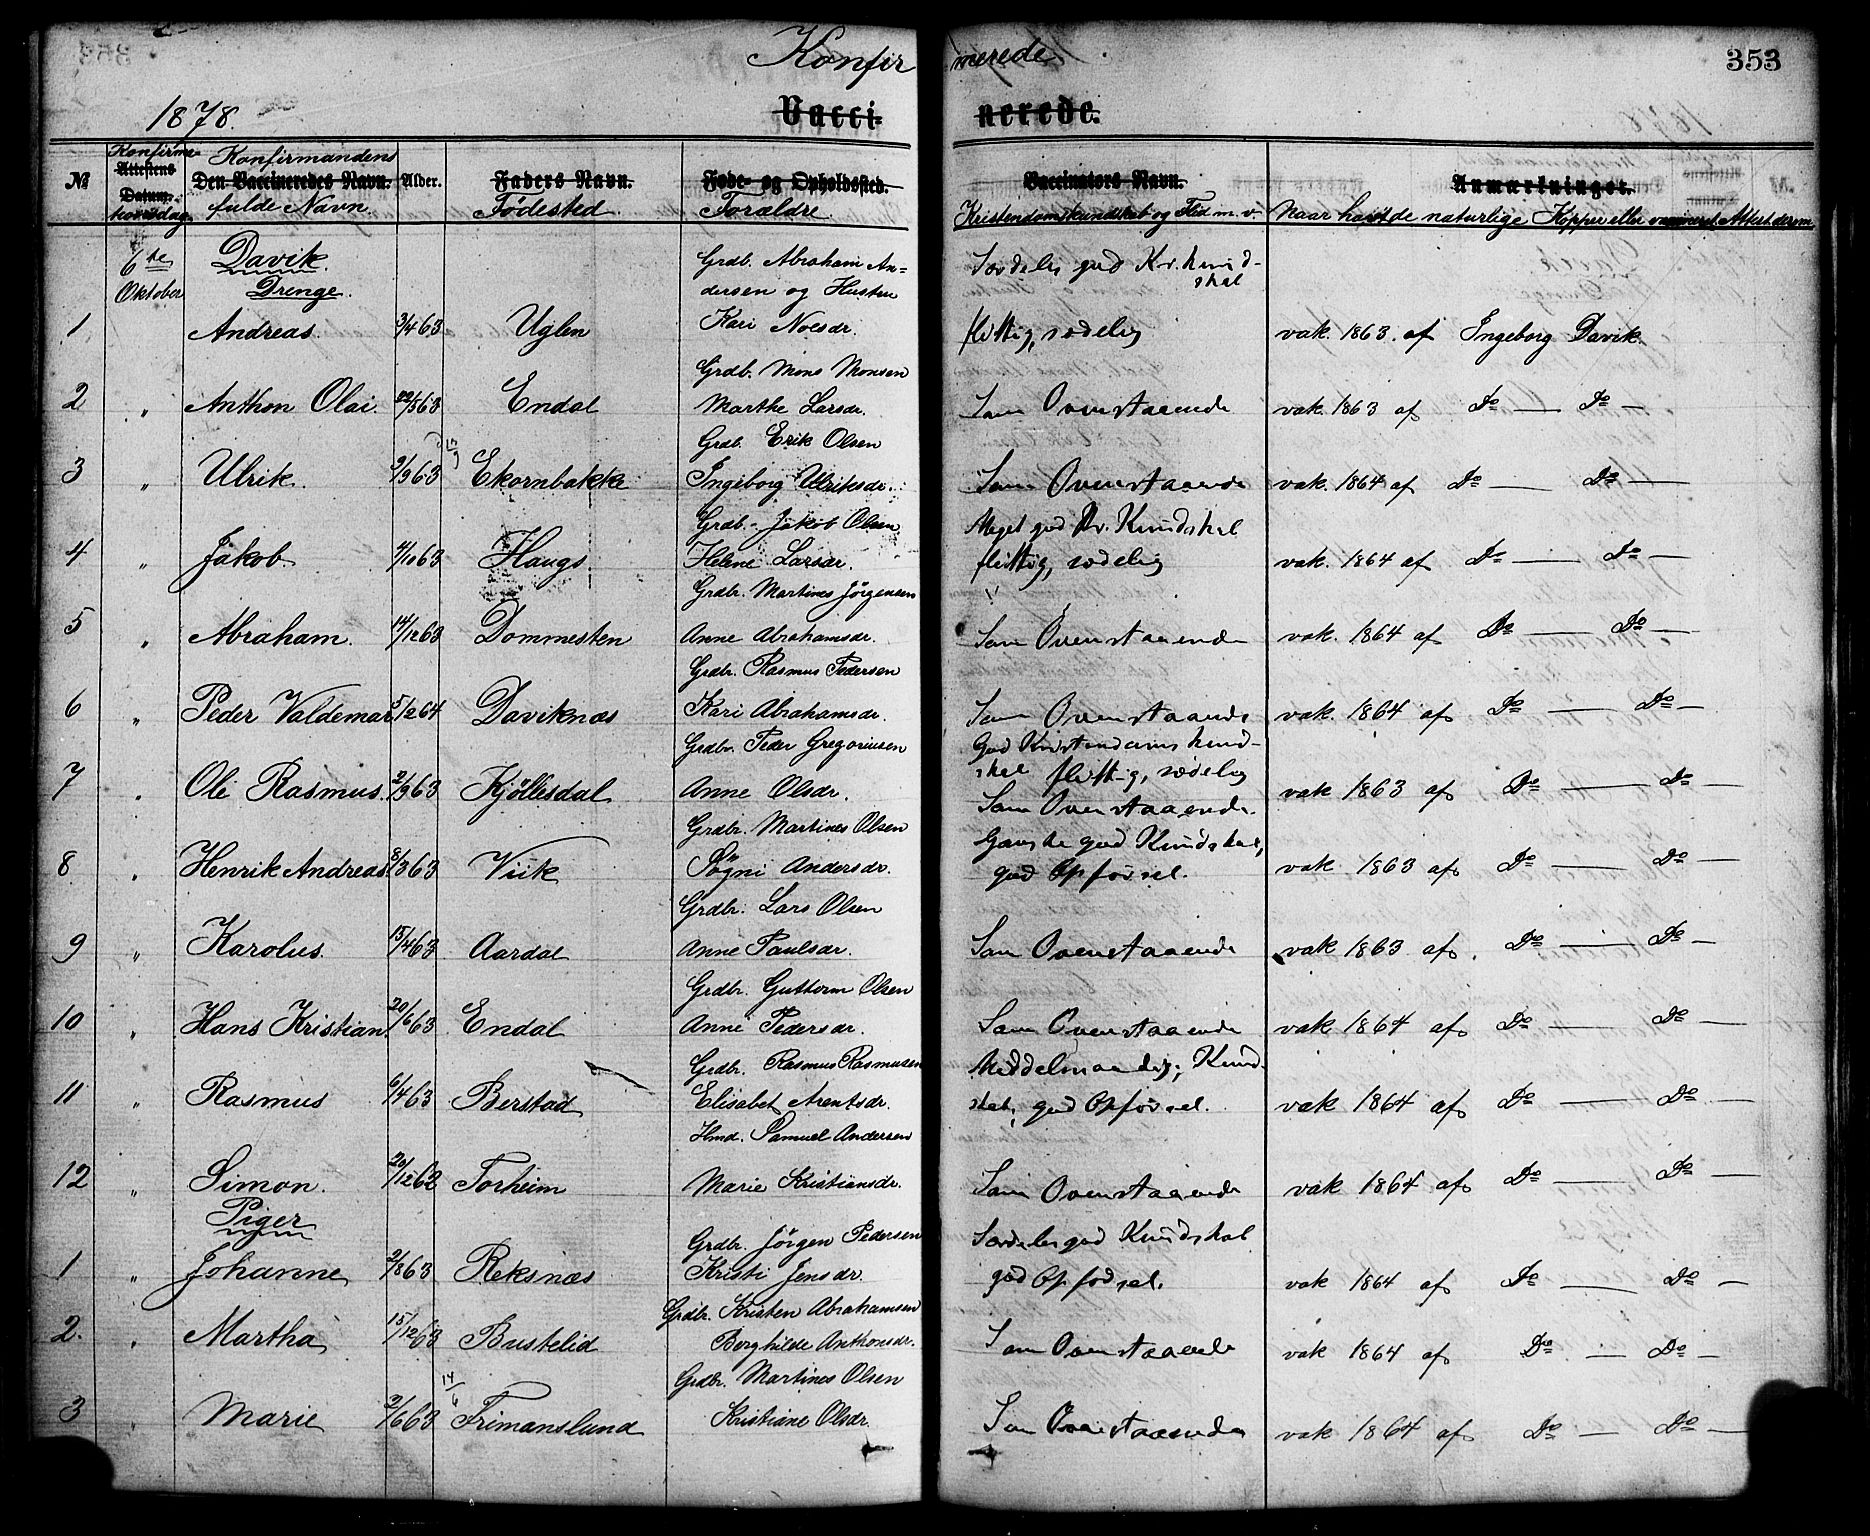 Konfirmerede
353
1878.
Vaccinerede.
Konfirma- Konfirmandens
№ Attestens Datum. Den Vaccineredes Navn. Alder. Faders Navn. Føde- og Opholdssted. Vaccinators Navn. Anmærkninger.
tionsdag. fulde Navn. Fødested Forældre Kristendomskundskab og Flid m. v. Naar havde naturlige Kopper eller vaccineret. Attest derom
6te Davik Grdb. Abraham An- Særdeles god Kr. kund-
Oktober Drenge. dersen og Hustru skab
1 Andreas. 3/4 63 Uglen Kari Noesdr. flittig, sædelig vak. 1863. af Ingeborg Davik.
Grdb. Mons Monsen
2 " Anthon Olai. 22/5 63 Endal Marthe Larsdr. Som Ovenstaaende vak. 1863 af Do — Do —
Grdb. Erik Olsen
3 " Ulrik. 9/9 63 Ekornbakke Ingeborg Ulriksdr. Som Ovenstaaende vak. 1864 af Do — Do —
Grdb. Jakob Olsen Meget god Kr. Kundskab
4 " Jakob 4/10 63 Haugs Helene Larsdr. flittig, sædelig vak. 1864 af Do — Do —
Grdbr. Martines Jørgensen
5 " Abraham. 14/12 63 Dommesten Anne Abrahamsdr. Som Ovenstaaende vak. 1864 af Do — Do —
Grdbr. Rasmus Pedersen
6 " Peder Valdemar 5/12 64 Daviknæs Kari Abrahamsdr. Som Ovenstaaende vak. 1864 af Do — Do —
Grdbr. Peder Gregoriusen God Kristendomskund-
skab flittig, sædelig
7 " Ole Rasmus. 2/9 63 Kjøllesdal Anne Olsdr. Som Ovenstaaende. vak 1863 af Do — Do —
Grdbr. Martines Olsen Ganske god Kundskab,
8 " Henrik Andreas 8/3 63 Viik Søgni Andersdr. god Opførsel. vak 1863 af Do — Do —
Grdbr. Lars Olsen
9 " Karolus. 15/4 63 Aardal Anne Paulsdr. Som Ovenstaaende vak 1863 af. Do — Do —
Grdbr. Guttorm Olsen
10 " Hans Kristian. 20/6 63 Endal Anne Pedersdr. Som Ovenstaaende vak 1864 af Do — Do —
Grdbr. Rasmus Rasmusen Middelmaadig; Kund-
11 " Rasmus 6/4 63 Berstad Elisabet Arentsdr. skab, god Opførsel. vak 1864 af Do — Do —
Hmd. Samuel Andersen
12 " Simon. 20/12 62 Torheim Marie Kristiansdr. Som Ovenstaaende vak 1864 af Do — Do —
Piger
Grdbr. Jørgen Pedersen Særdeles god Kundskab
1 " Johanne 2/8 63 Reksnæs Kristi Jensdr. god Opførsel. vak 1864 af Do — Do —
Grdbr. Kristen Abrahamsen
2. " Martha 15/12 63 Bustelid Berghilde Anthonsdr. Som Ovenstaaende vak 1864 af Do — Do —
Grdbr. Martines Olsen
14/6
3 " Marie 2/6 63 Frimanslund Kristiane Olsdr. Som Ovenstaaende vak 1864 af Do — Do —